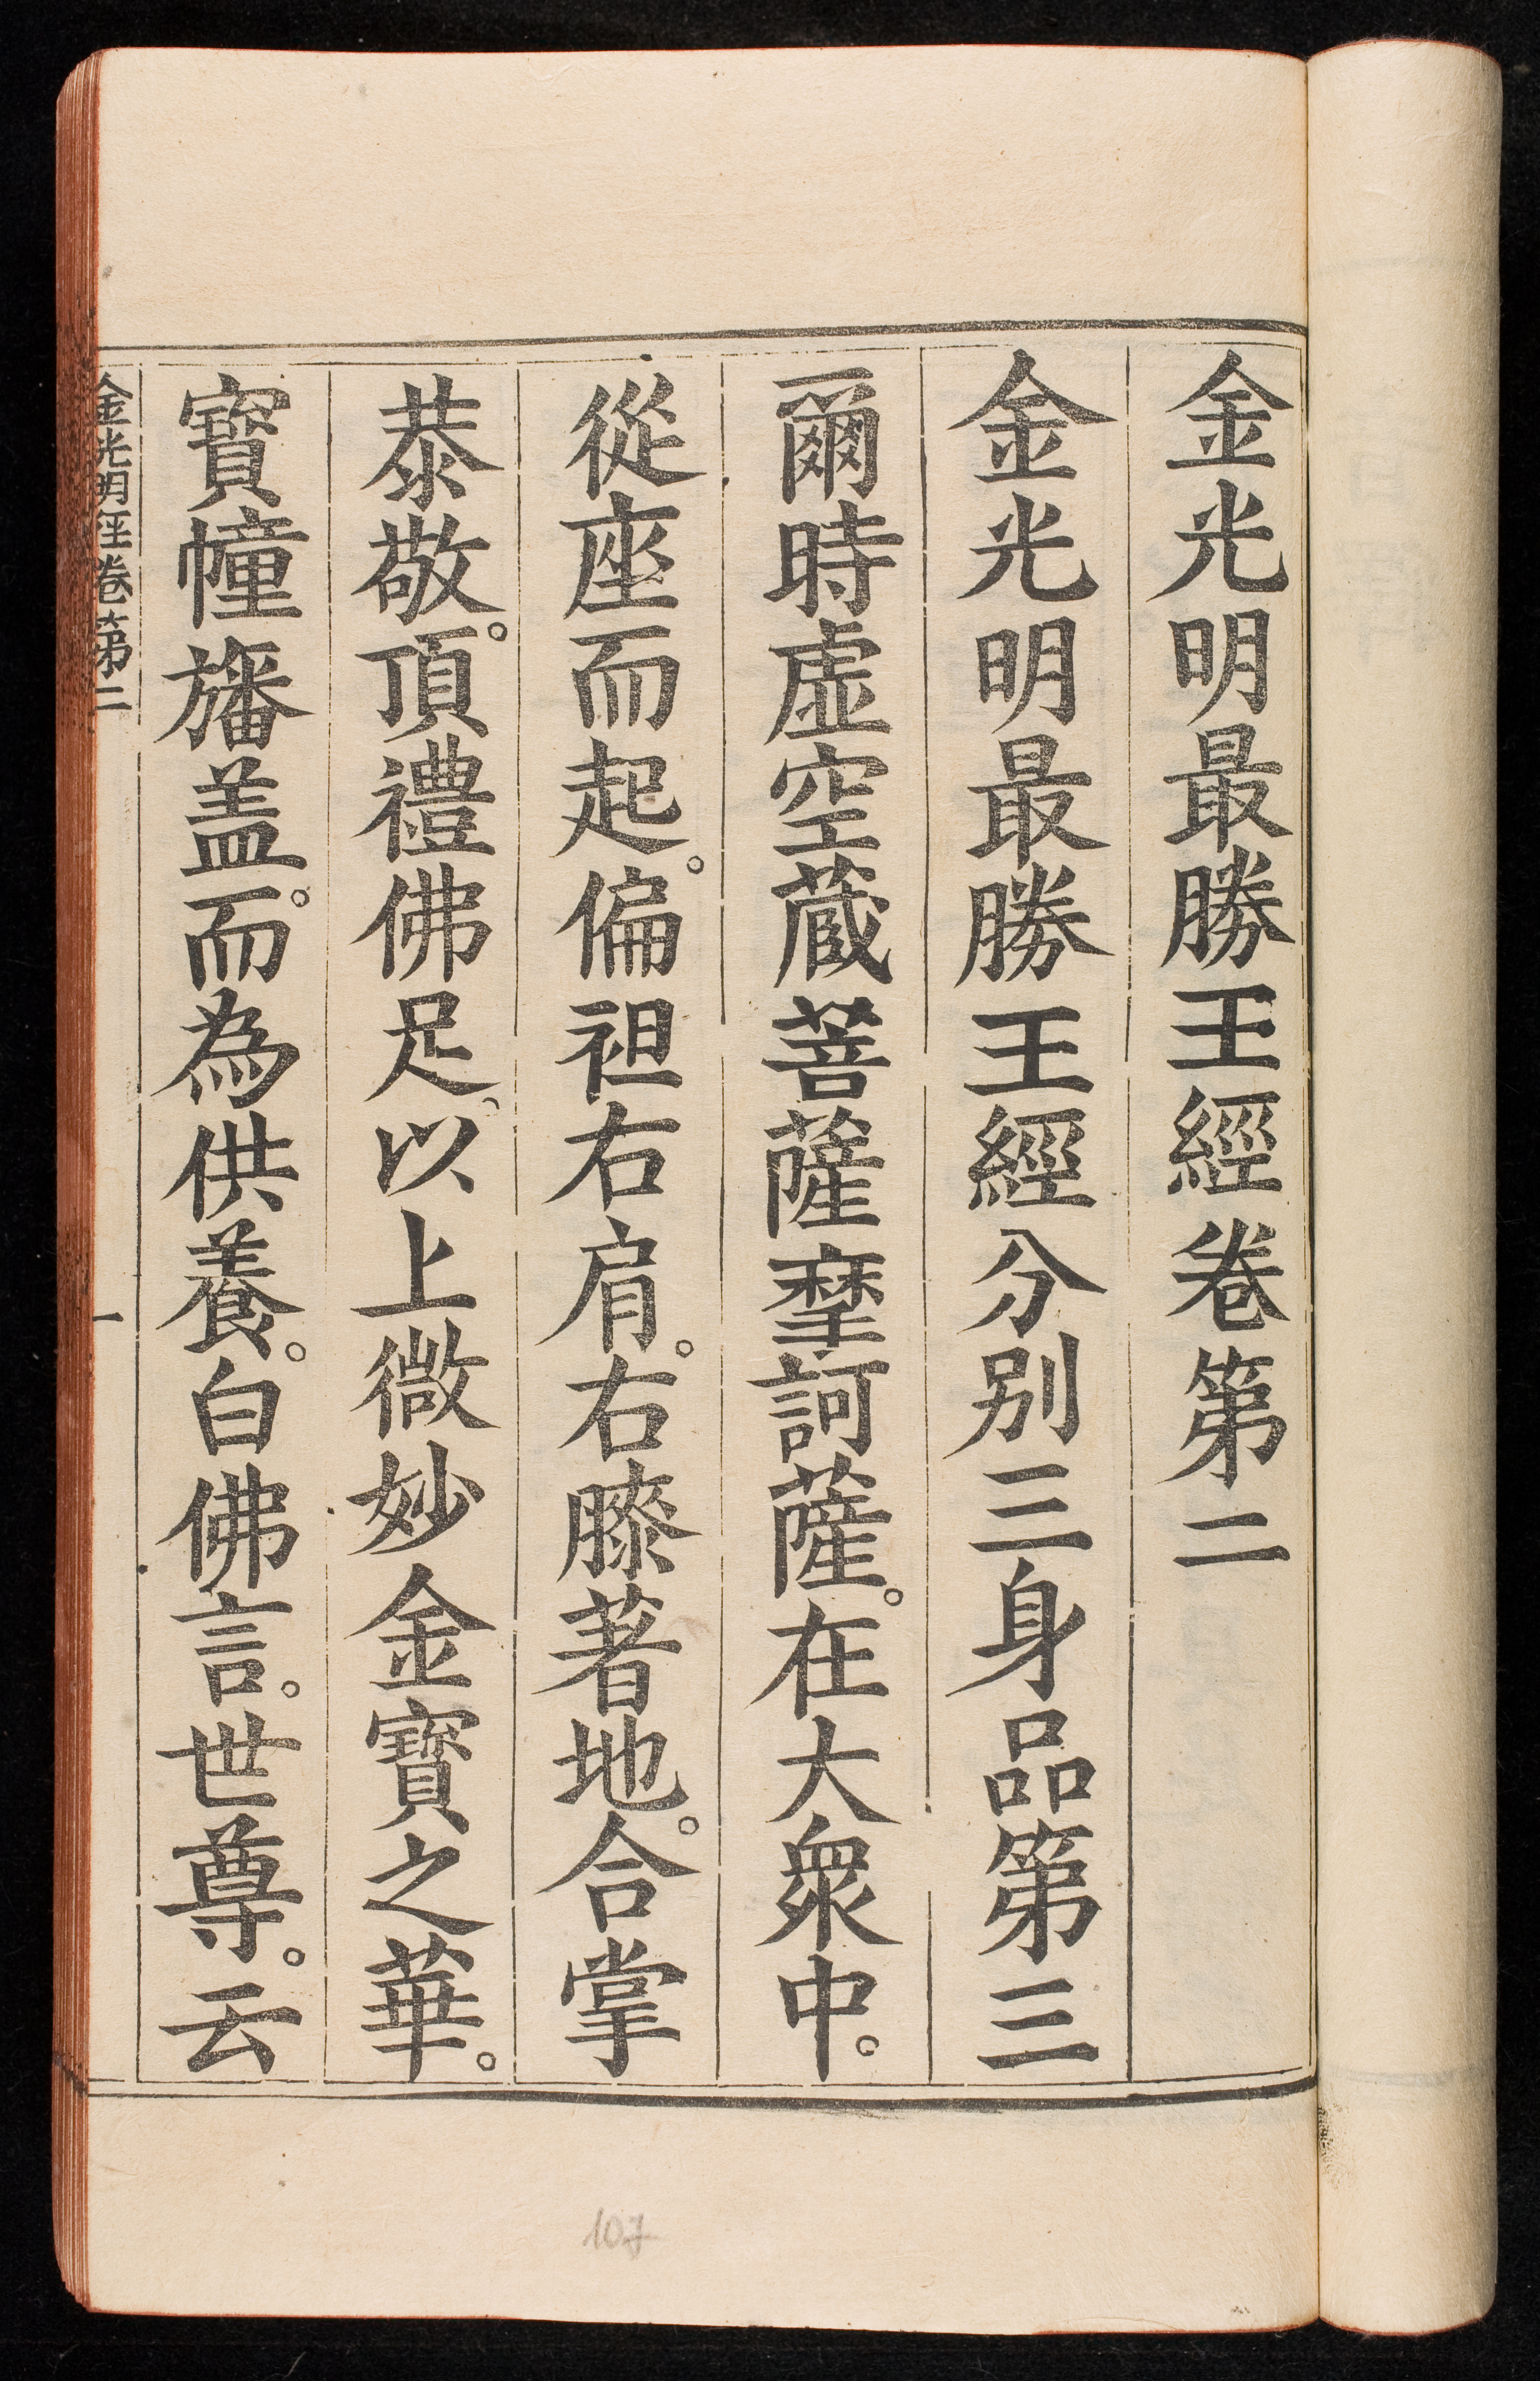 金光明最勝王經卷第二
金光明最勝王經分别三身品第三
爾時虛空蔵菩薩摩訶薩。在大衆中。
從座而起。偏袒右肩。右膝著地。合掌
恭敬。頂禮佛足。以上微妙金寶之華。
寶幢旛盖。而為供養。白佛言。世尊。云
金光明經卷第二
一
107